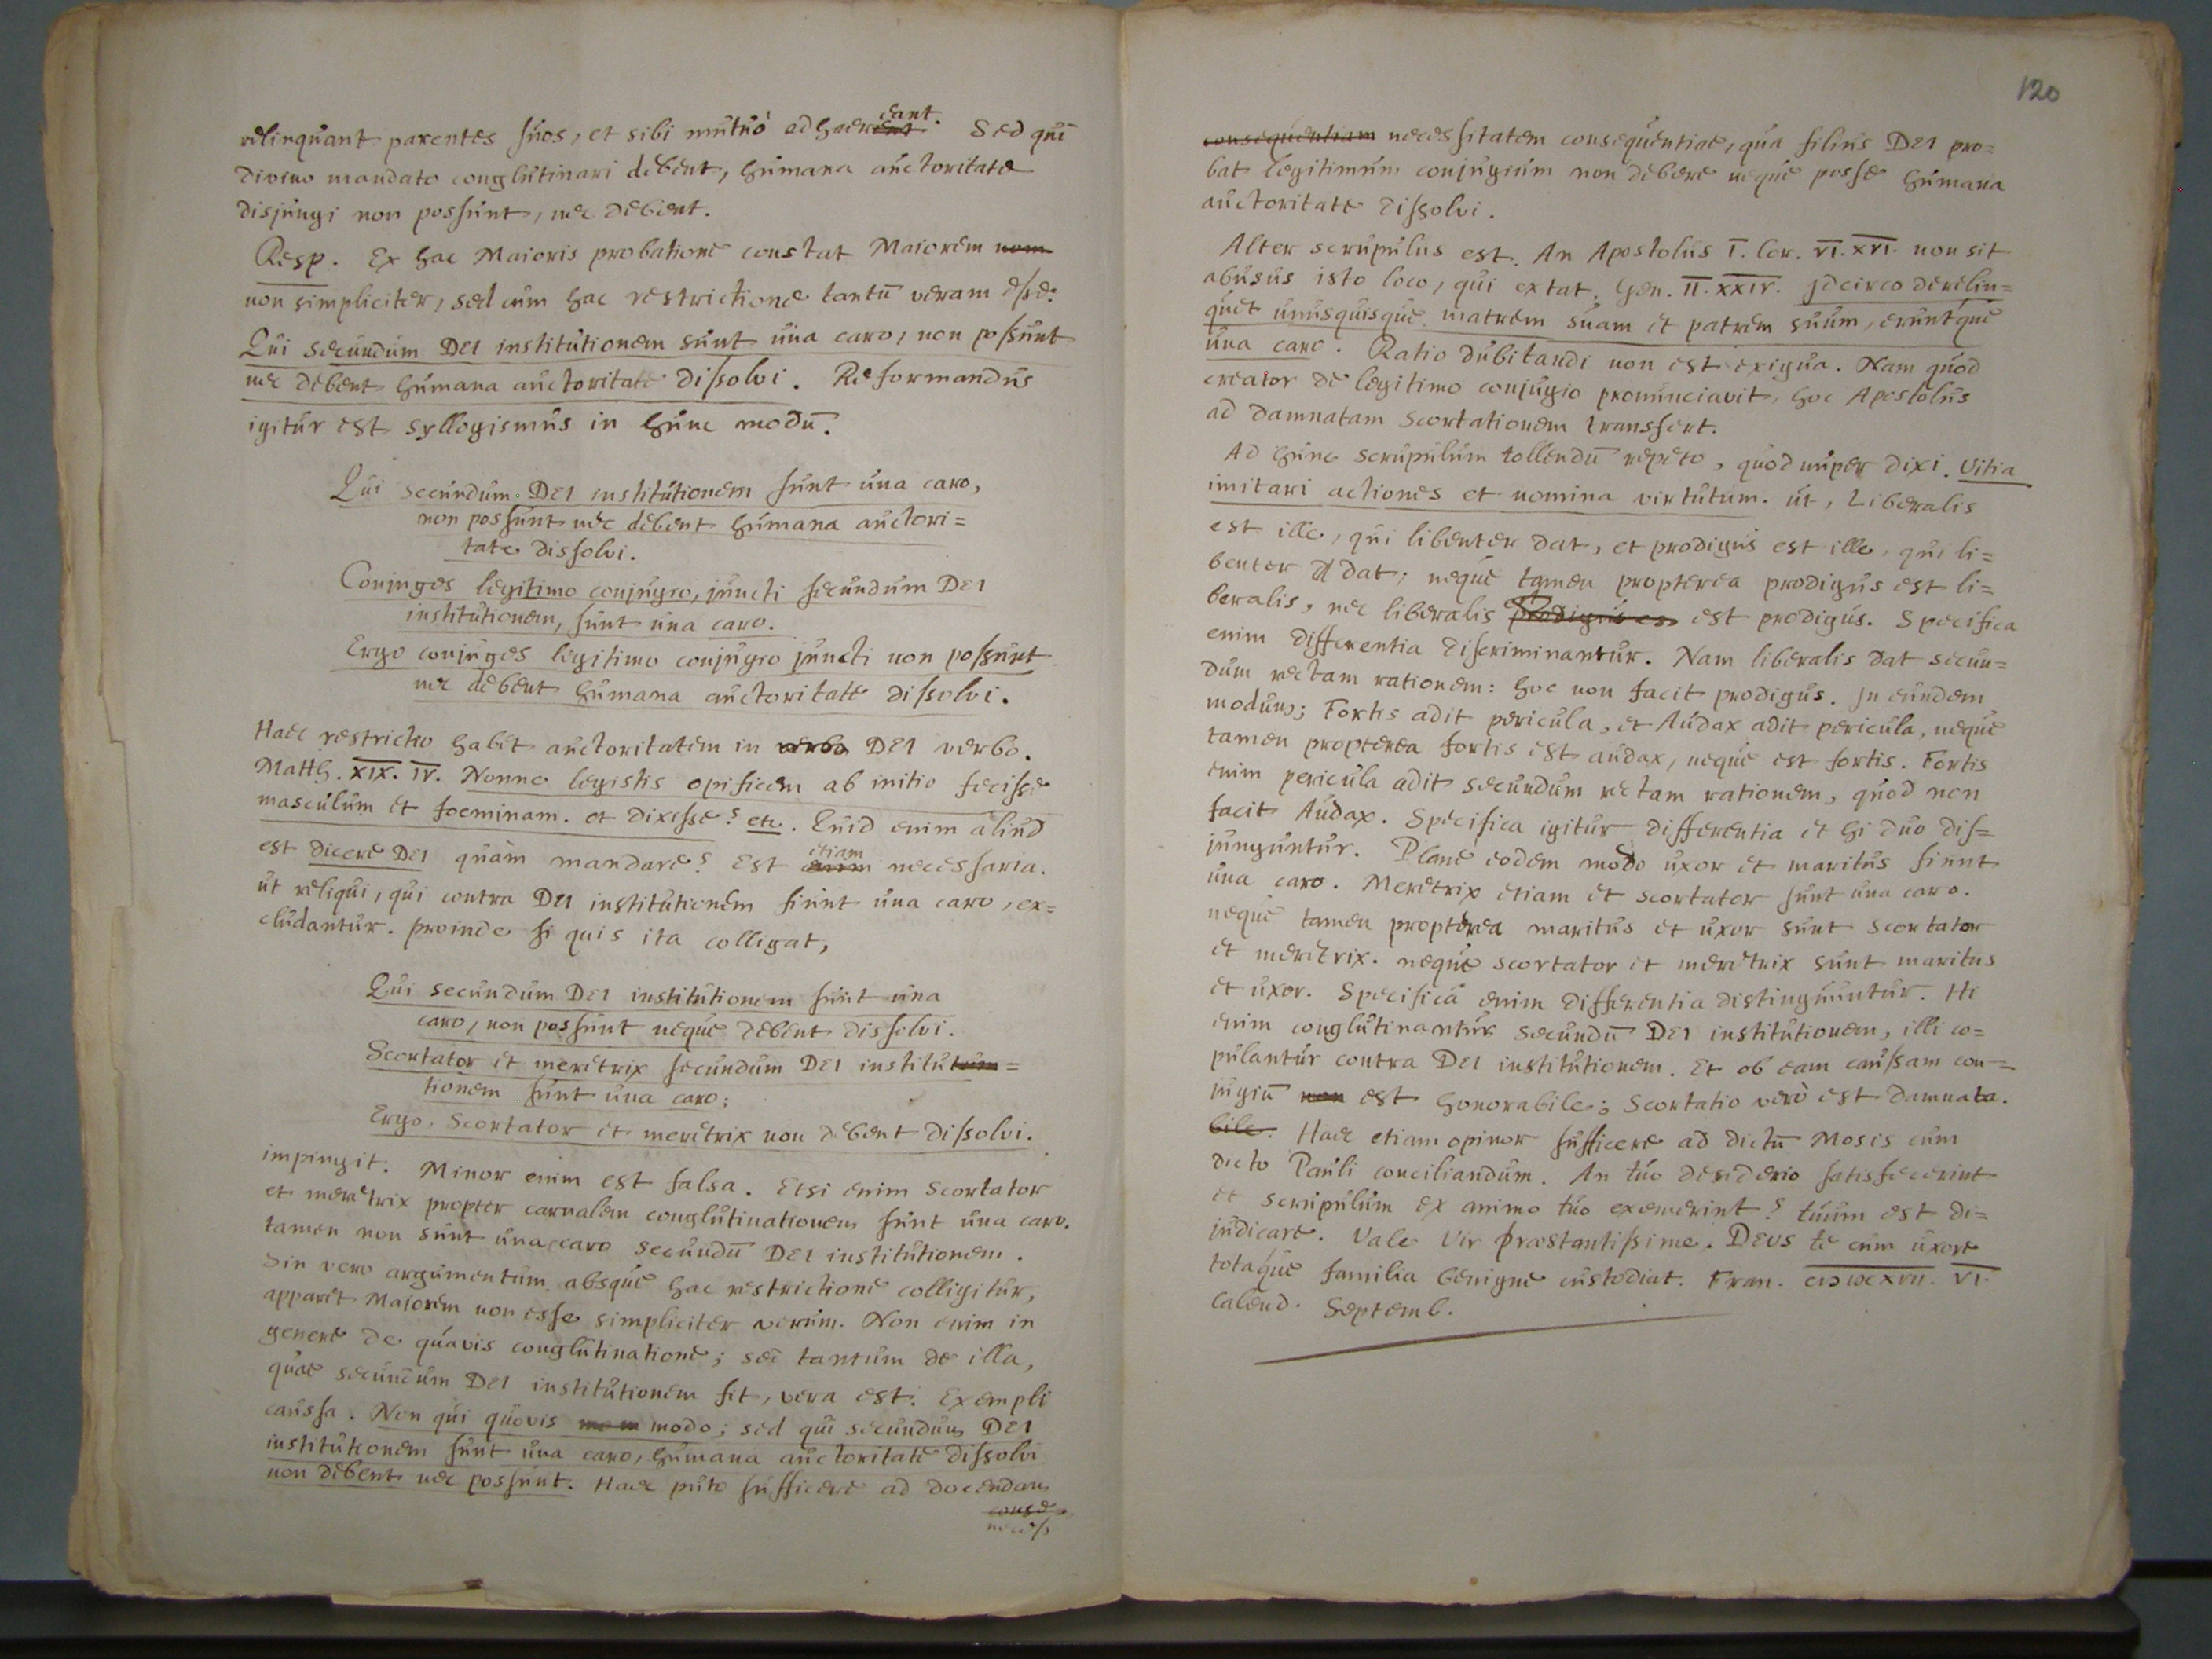 relinquant parentes suos, et sibi mutuò adhaerent eant. Sed qui
divino mandato conglutinari debent, humana auctoritate
disjungi non possunt, nec debent.
Resp. Ex hac Maioris probatione constat Maiorem nom
non simpliciter, sed cum hac restrictione tantū veram esse:
Qui secundum DEI institutionem sunt una caro, non possunt
nec debent humana auctoritate dissolvi. Reformandus
igitur est syllogismus in hunc modū.
Qui secundum DEI institutionem sunt una caro,
non possunt nec debent humana auctori=
tate dissolvi.
Conjuges legitimo conjugio, juncti secundum DEI
institutionem, sunt una caro.
Ergo conjuges legitimo conjugio juncti non possunt
nec debent humana auctoritate dissolvi.
Haec restrictio habet auctoritatem in verbo DEI verbo.
Matth. XIX. IV. Nonne legistis opificem ab initio fecisse
masculum et foeminam. et dixisse? etc. Quid enim aliud
est dicere DEI quàm mandare? Est enim etiam necessaria.
ut reliqui, qui contra DEI institutionem fiunt una caro, ex=
cludantur. proinde si quis ita colligat,
Qui secundum DEI institutionem sunt una
caro, non possunt neque debent dissolvi.
Scortator et meretrix secundum DEI institutum=
tionem sunt una caro;
Ergo. Scortator et meretrix non debent dissolvi.
impingit. Minor enim est falsa. Etsi enim Scortator
et meretrix propter carnalem conglutinationem sunt una caro.
tamen non sunt una caro secundū DEI institutionem.
Sin vero argumentum absque hac restrictione colligitur,
apparet Majorem non esse simpliciter verum. Non enim in
genere de quavis conglutinatione; sed tantum de illa,
quae secundum DEI institutionem fit, vera est. Exempli
caussa. Non qui quovis mom modo; sed qui secundum DEI
institutionem sunt una caro, humana auctoritate dissolvi
non debent nec possunt. Haec puto sufficere ad docendam
conse
necess
120
consequentiam necessitatem consequentiae, qua filius DEI pro=
bat legitimum conjugium non debere neque posse humana
auctoritate dissolvi.
Alter scrupulus est. An Apostolus I. Cor. VI. XVI. non sit
abusus isto loco, qui extat. Gen. II. XXIV. Idcirco derelin=
quet unusquisque matrem suam et patrem suum, eruntque
una caro. Ratio dubitandi non est exigua. Nam quod
creator de legitimo conjugio pronunciavit, hoc Apostolus
ad damnatam Scortationem transfert.
Ad hunc scrupulum tollendū repeto, quod nuper dixi. Vitia
imitari actiones et nomina virtutum. ut, Liberalis
est ille, qui libenter dat, et prodigus est ille, qui li=
benter dat; neque tamen propterea prodigus est li=
beralis, nec liberalis prodigus es est prodigus. Specifica
enim differentia discriminantur. Nam liberalis dat secun=
dum rectam rationem: hoc non facit prodigus. In eundem
modum; Fortis adit pericula, et Audax adit pericula, neque
tamen propterea fortis est audax, neque est fortis. Fortis
enim pericula adit secundum rectam rationem, quod non
facit Audax. Specifica igitur differentia et hi duo dis=
junguntur. Planè eodem modo uxor et maritus fiunt
una caro. Meretrix etiam et scortator sunt una caro.
neque tamen propterea maritus et uxor sunt scortator
et meretrix. neque scortator et meretrix sunt maritus
et uxor. Specifica enim differentia distinguuntur. Hi
enim conglutinantur secundū DEI institutionem, illi co=
pulantur contra DEI institutionem. Et ob eam caussam con=
jugiū non est honorabile; Scortatio verò est damnata.
bile. Haec etiam opinor sufficere ad dictū Mosis cum
dicto Pauli conciliandum. An tuo desiderio satisfecerint
et scrupulum ex animo tuo exemerint? tuum est di=
judicare. Vale Vir praestantissime. DEUS te cum uxore
totaque familia benigne custodiat. Fran. VI.
Calend. Septemb.